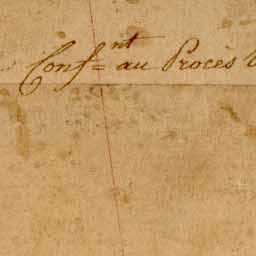 Conf=nt au Procès